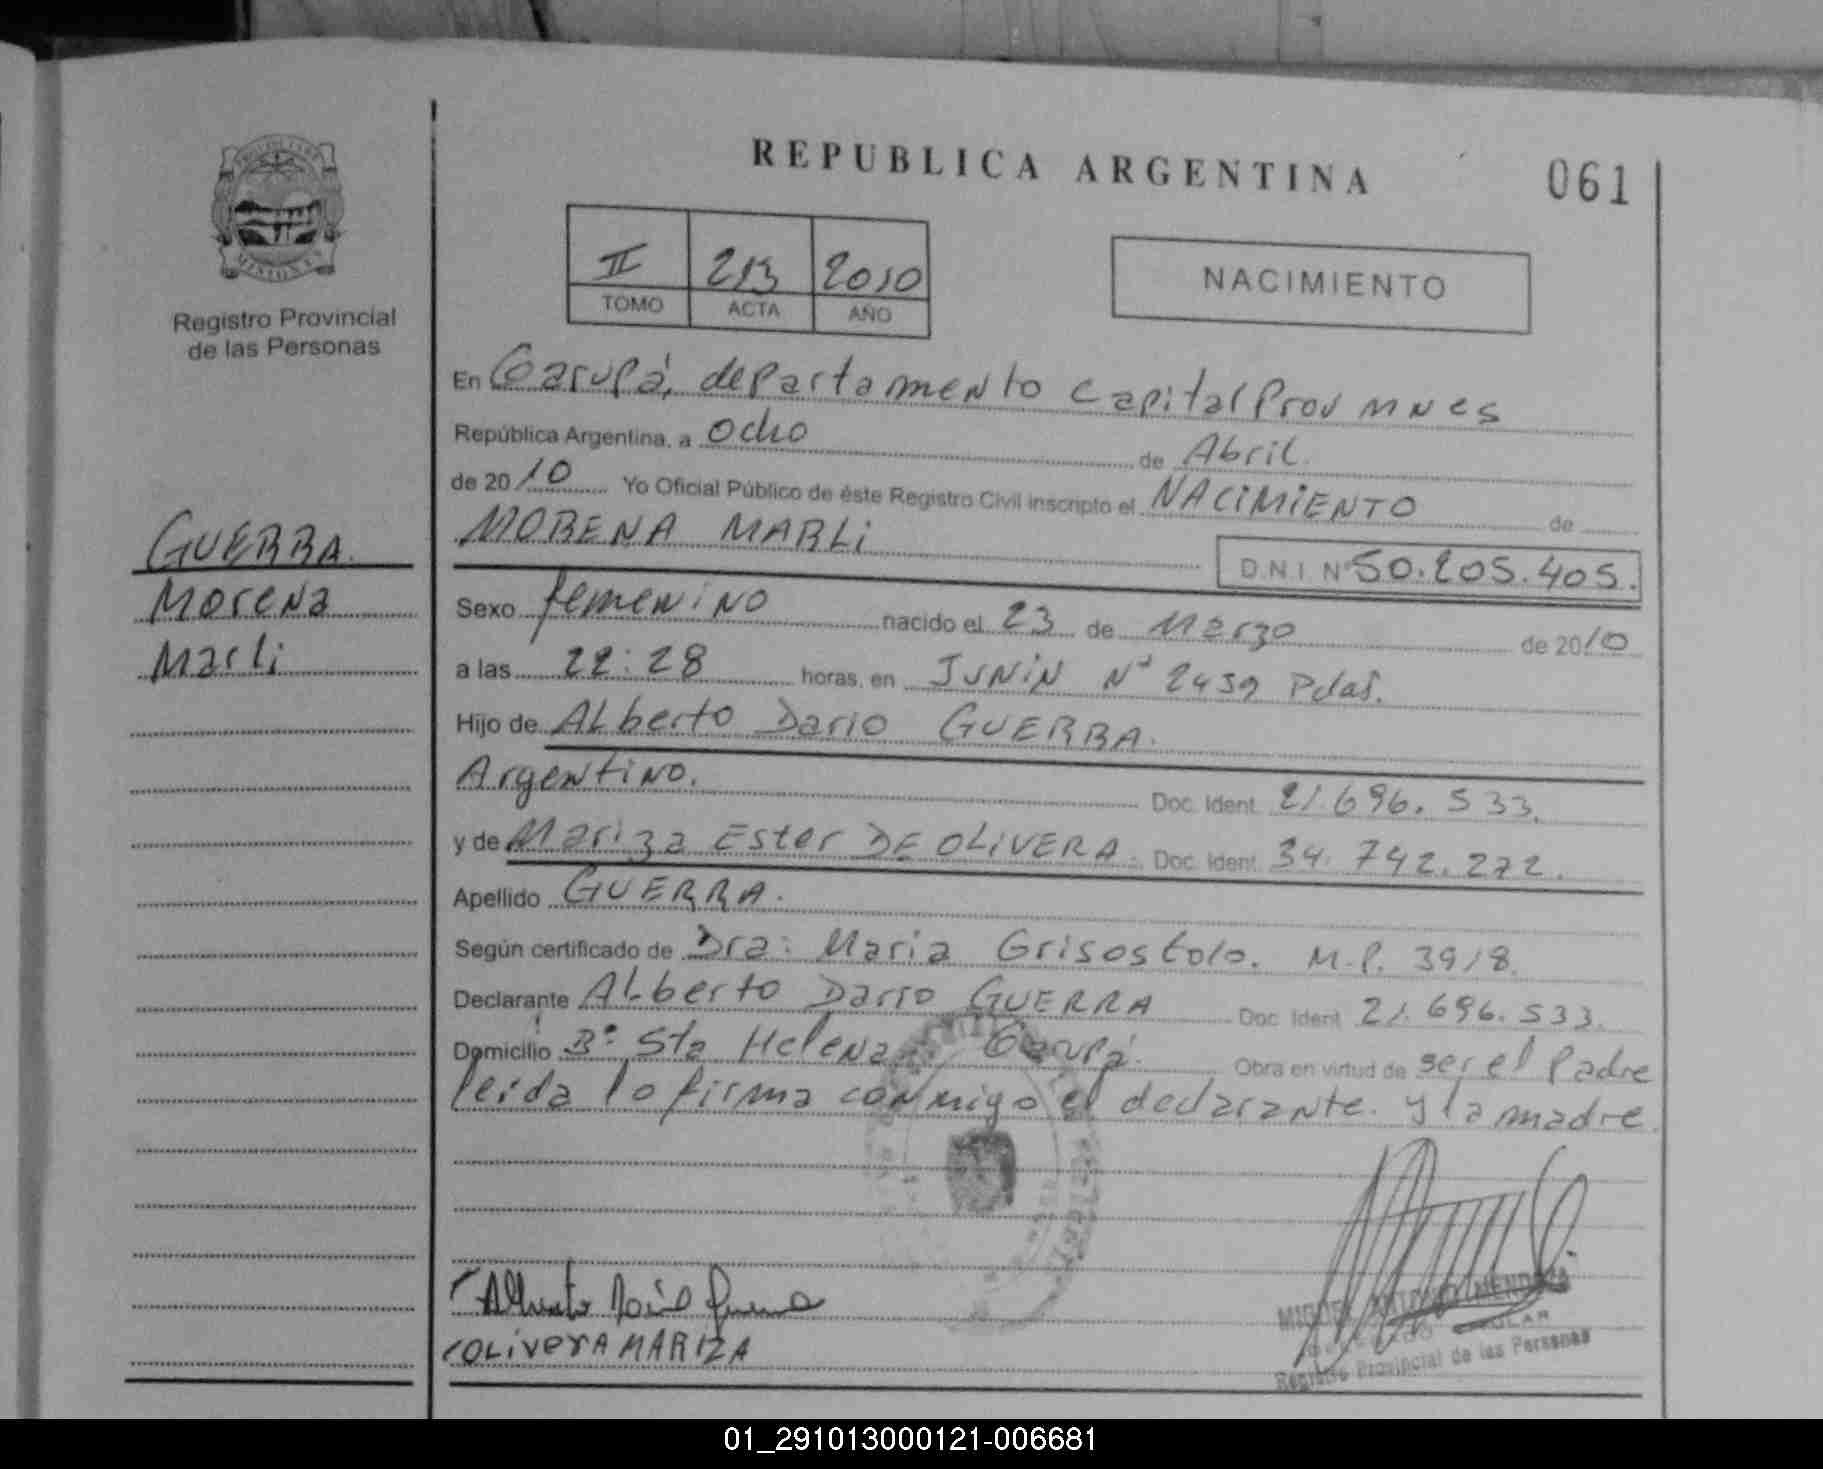 REPUBLICA ARGENTINA
061
MISIONES
Registro Provincial
de las Personas
II 213 2010
TOMO ACTA AÑO
NACIMIENTO
En Garupá, departamento Capital Prov Mnes
República Argentina, a Ocho de Abril.
de 2010 Yo Oficial Público de éste Registro Civil inscripto el NACIMIENTO de
MORENA MARLI
D.N.I. Nº 50.205.405.
GUERRA.
Morena
Marli
Sexo femenino nacido el 23 de Marzo de 2010
a las 22:28 horas, en JUNIN Nº 2439 Pdas.
Hijo de Alberto Dario GUERRA.
Argentino. Doc. Ident. 21.696.533.
y de Mariza Ester DE OLIVERA. Doc. Ident. 34.742.272.
Apellido GUERRA.
Según certificado de Dra: Maria Grisostolo. M.P. 3918.
Declarante Alberto Dario GUERRA Doc. Ident. 21.696.533.
Domicilio Bº Sta Helena Garupá. Obra en virtud de ser el Padre
leida lo firma conmigo el declarante. y la madre.
Alberto Dario Guerra
OLIVERA MARIZA
MIGUEL MENDOZA
Registro Provincial de las Personas
01_291013000121-006681